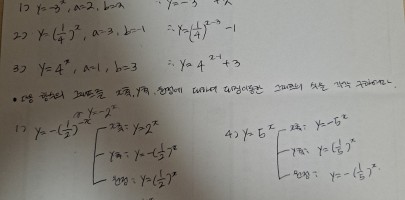 1) y=-3ˣ, a=2, b=2 ∴ y=-3
2) y=(1/4)ˣ, a=3, b=-1 ∴ y=(1/4)ˣ⁻³ -1
3) y=4ˣ, a=1, b=3 ∴ y=4ˣ⁻¹+3
• 다음 함수의 그래프를 x축, y축, 원점에 대하여 대칭이동한 그래프의 식을 각각 구하여라.
y=-2ˣ
1) y=-(1/2)⁻ˣ x축: y=2ˣ 4) y=5ˣ x축: y=-5ˣ
y축: y=-(1/2)ˣ y축: y=(1/5)ˣ
원점: y=(1/2)ˣ 원점: y=-(1/5)ˣ